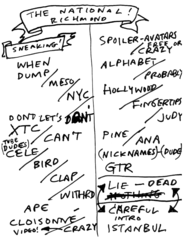 THE NATIONAL!
RICHMOND
SNEAKING!
WHEN
DUMP/
MESO/
NYC
DON'T LET'S
XTC
THESE DUDES
CAN'T
CELE
BIRD
CLAP
WITHRD
APE
CLOISONNE
VIDEO! CRAZY
SPOILER-AVATARS
FREE OR
CRAZY
ALPHABET
PROBABL)
HOLLYWOOD
FINGERTIPS
JUDY
PINE
ANA
(NICKNAMES)-(DUDE)
GTR
LIE - DEAD
CAREFUL
INTRO
ISTANBUL